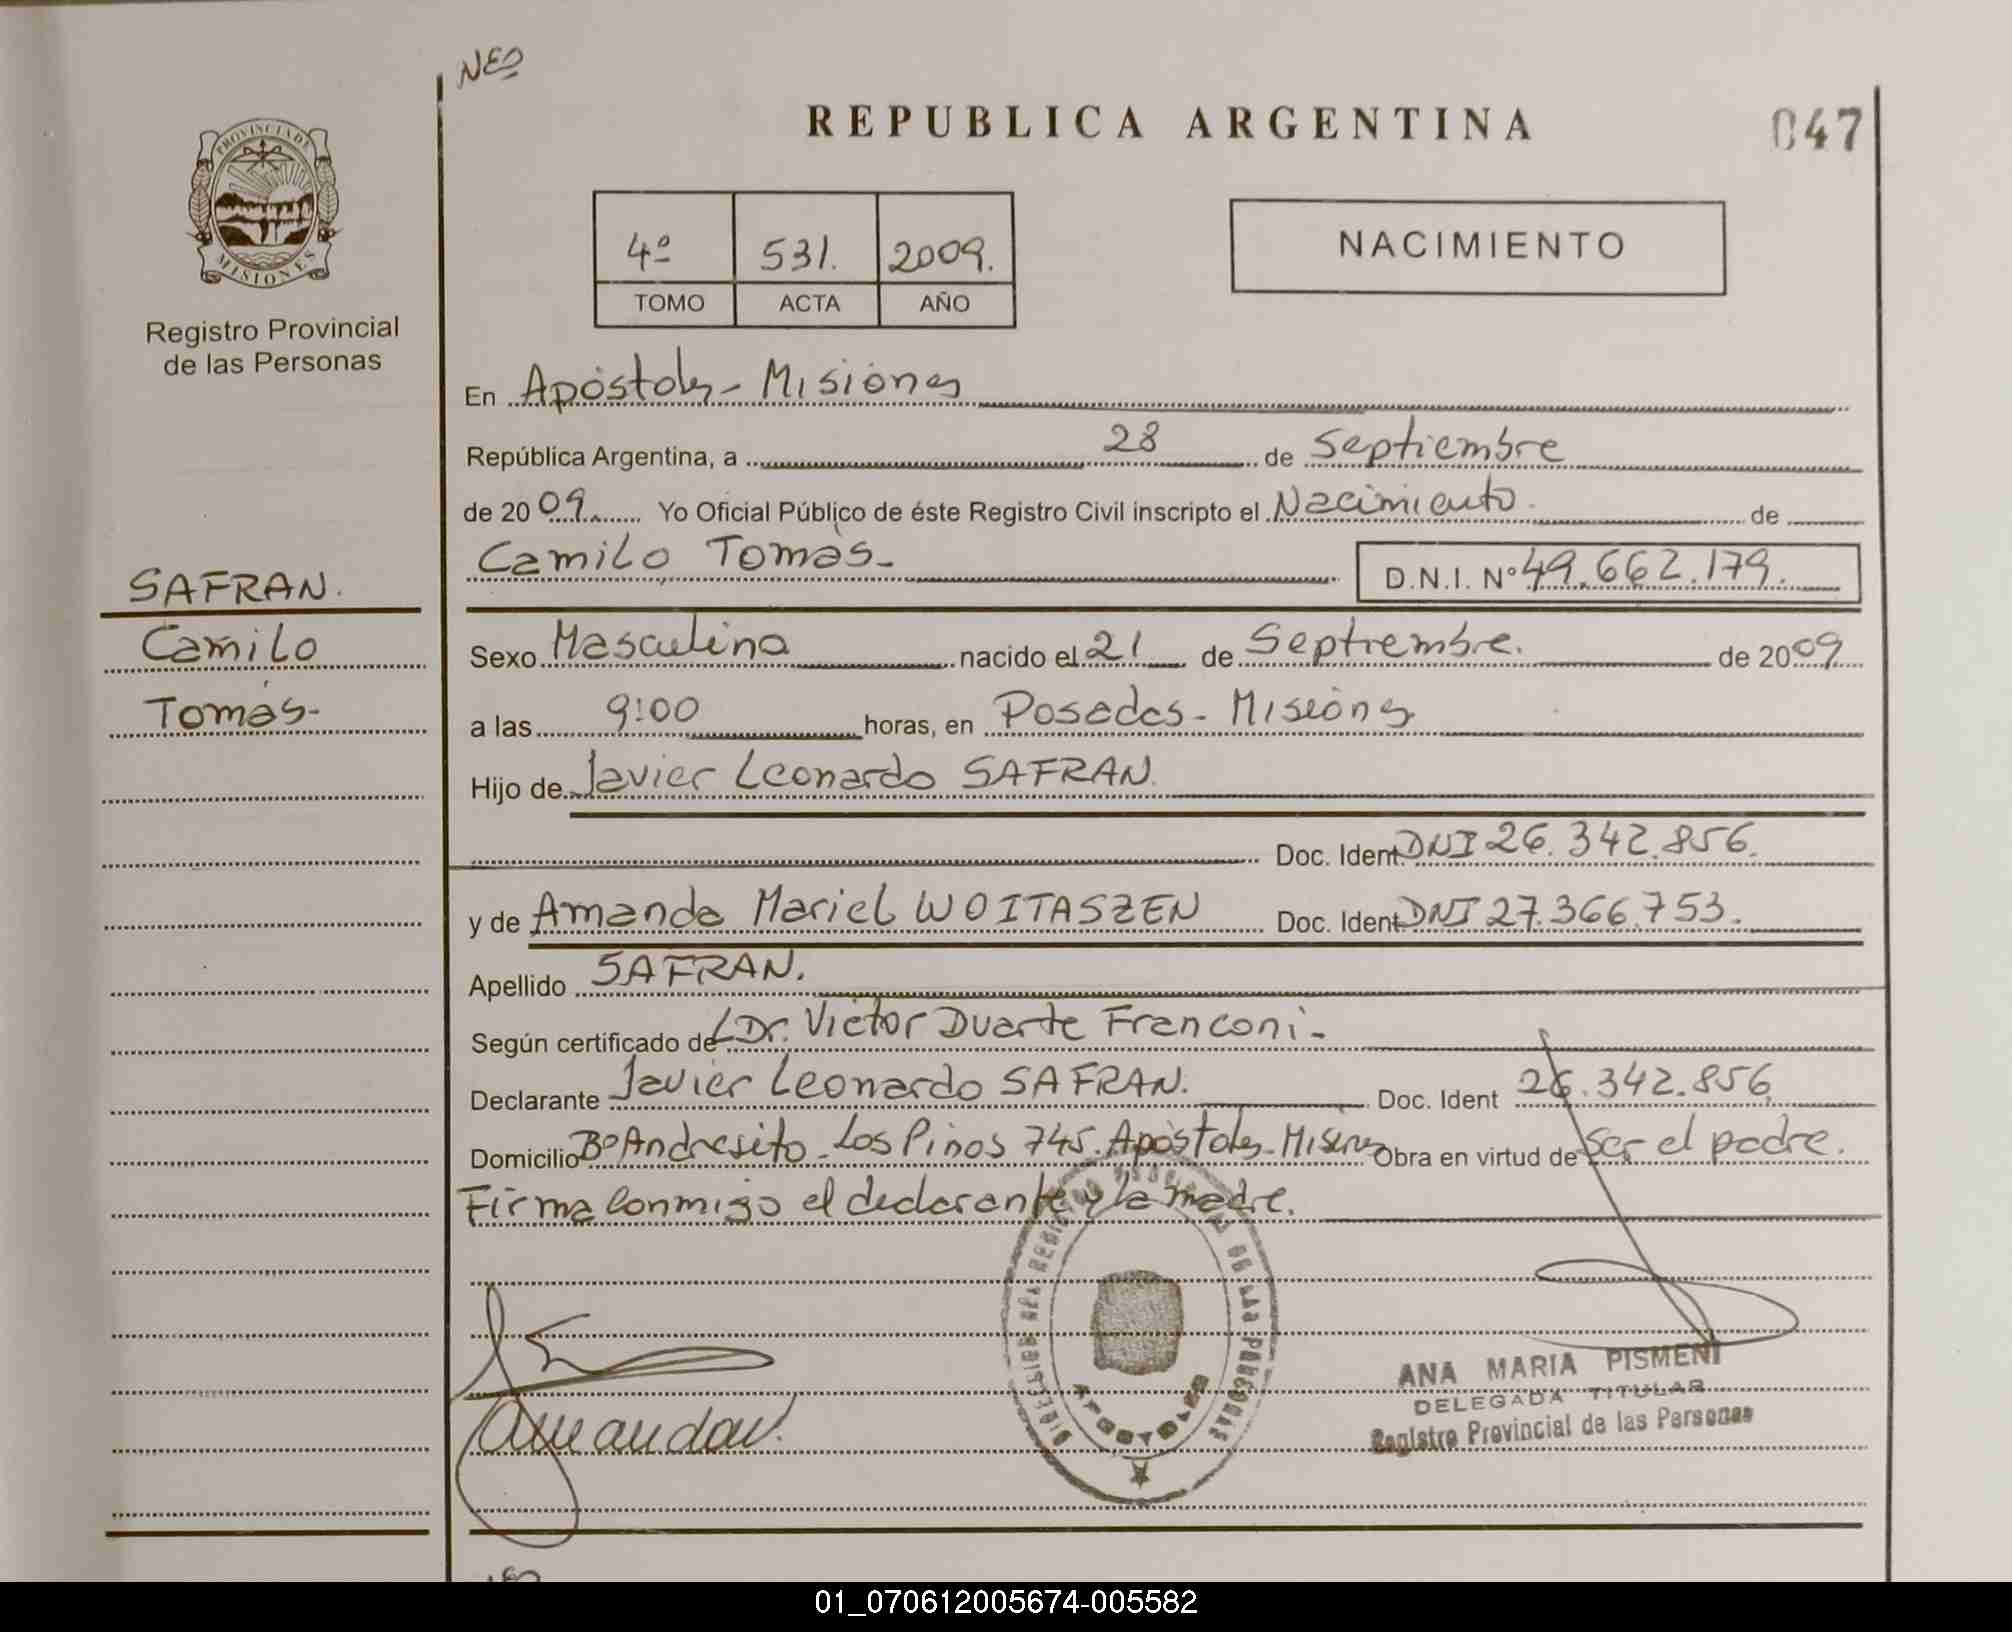 NEO
REPUBLICA ARGENTINA
047
PROVINCIA DE
MISIONES
Registro Provincial
de las Personas
4º 531. 2009.
TOMO ACTA AÑO
NACIMIENTO
En Apóstoles - Misiones
República Argentina, a 28 de Septiembre
de 2009. Yo Oficial Público de éste Registro Civil inscripto el Nacimiento. de
Camilo Tomás.-
D.N.I. Nº 49.662.179.
SAFRAN.
Camilo
Tomás-
Sexo Masculino nacido el 21 de Septiembre. de 2009
a las 9:00 horas, en Posadas - Misiones
Hijo de Javier Leonardo SAFRAN.
Doc. Ident DNI 26.342.856.
y de Amanda Mariel WOITASZEN Doc. Ident DNI 27.366.753.
Apellido SAFRAN.
Según certificado del Dr. Victor Duarte Franconi -
Declarante Javier Leonardo SAFRAN. Doc. Ident 26.342.856.
Domicilio Bº Andresito - Los Pinos 745. Apóstoles - Misiones Obra en virtud de Ser el padre.
Firma conmigo el declarante y la madre.
DIRECCION DEL REGISTRO PROVINCIAL DE LAS PERSONAS
APOSTOLES
ANA MARIA PISMENI
DELEGADA TITULAR
Registro Provincial de las Personas
01_070612005674-005582